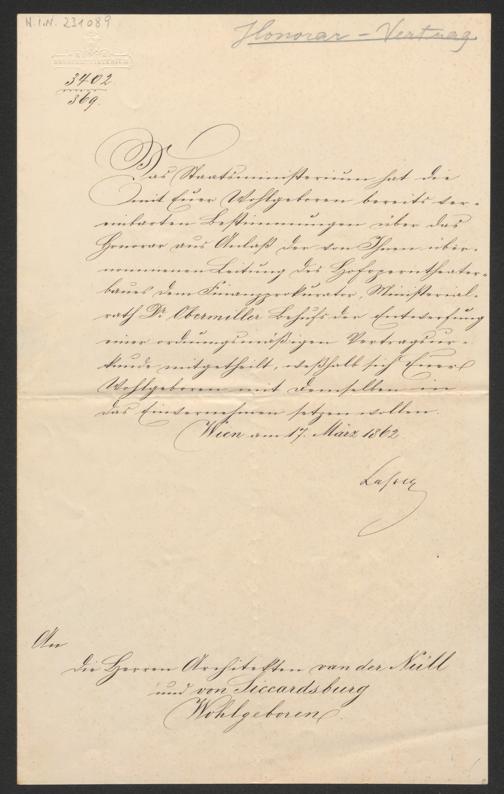 H.I.N. 231089
Honorar - Vertrag
3402
369.
Das Staatsministerium hat die
mit Euer Wohlgeboren bereits ver-
einbarten Bestimmungen über das
Honorar aus Anlaß der von Ihnen über-
nommenen Leitung des Hofoperntheater-
baues dem Finanzprokurator, Ministerial-
rath Dr. Obermiller Behufs der Entwerfung
einer ordnungsmäßigen Vertragsur-
kunde mitgetheilt, weßhalb sich Euer
Wohlgeboren mit demselben in
das Einvernehmen setzen wollen.
Wien am 17. März 1862
Lasser
An
die Herren Architekten van der Nüll
und von Siccardsburg
Wohlgeboren.